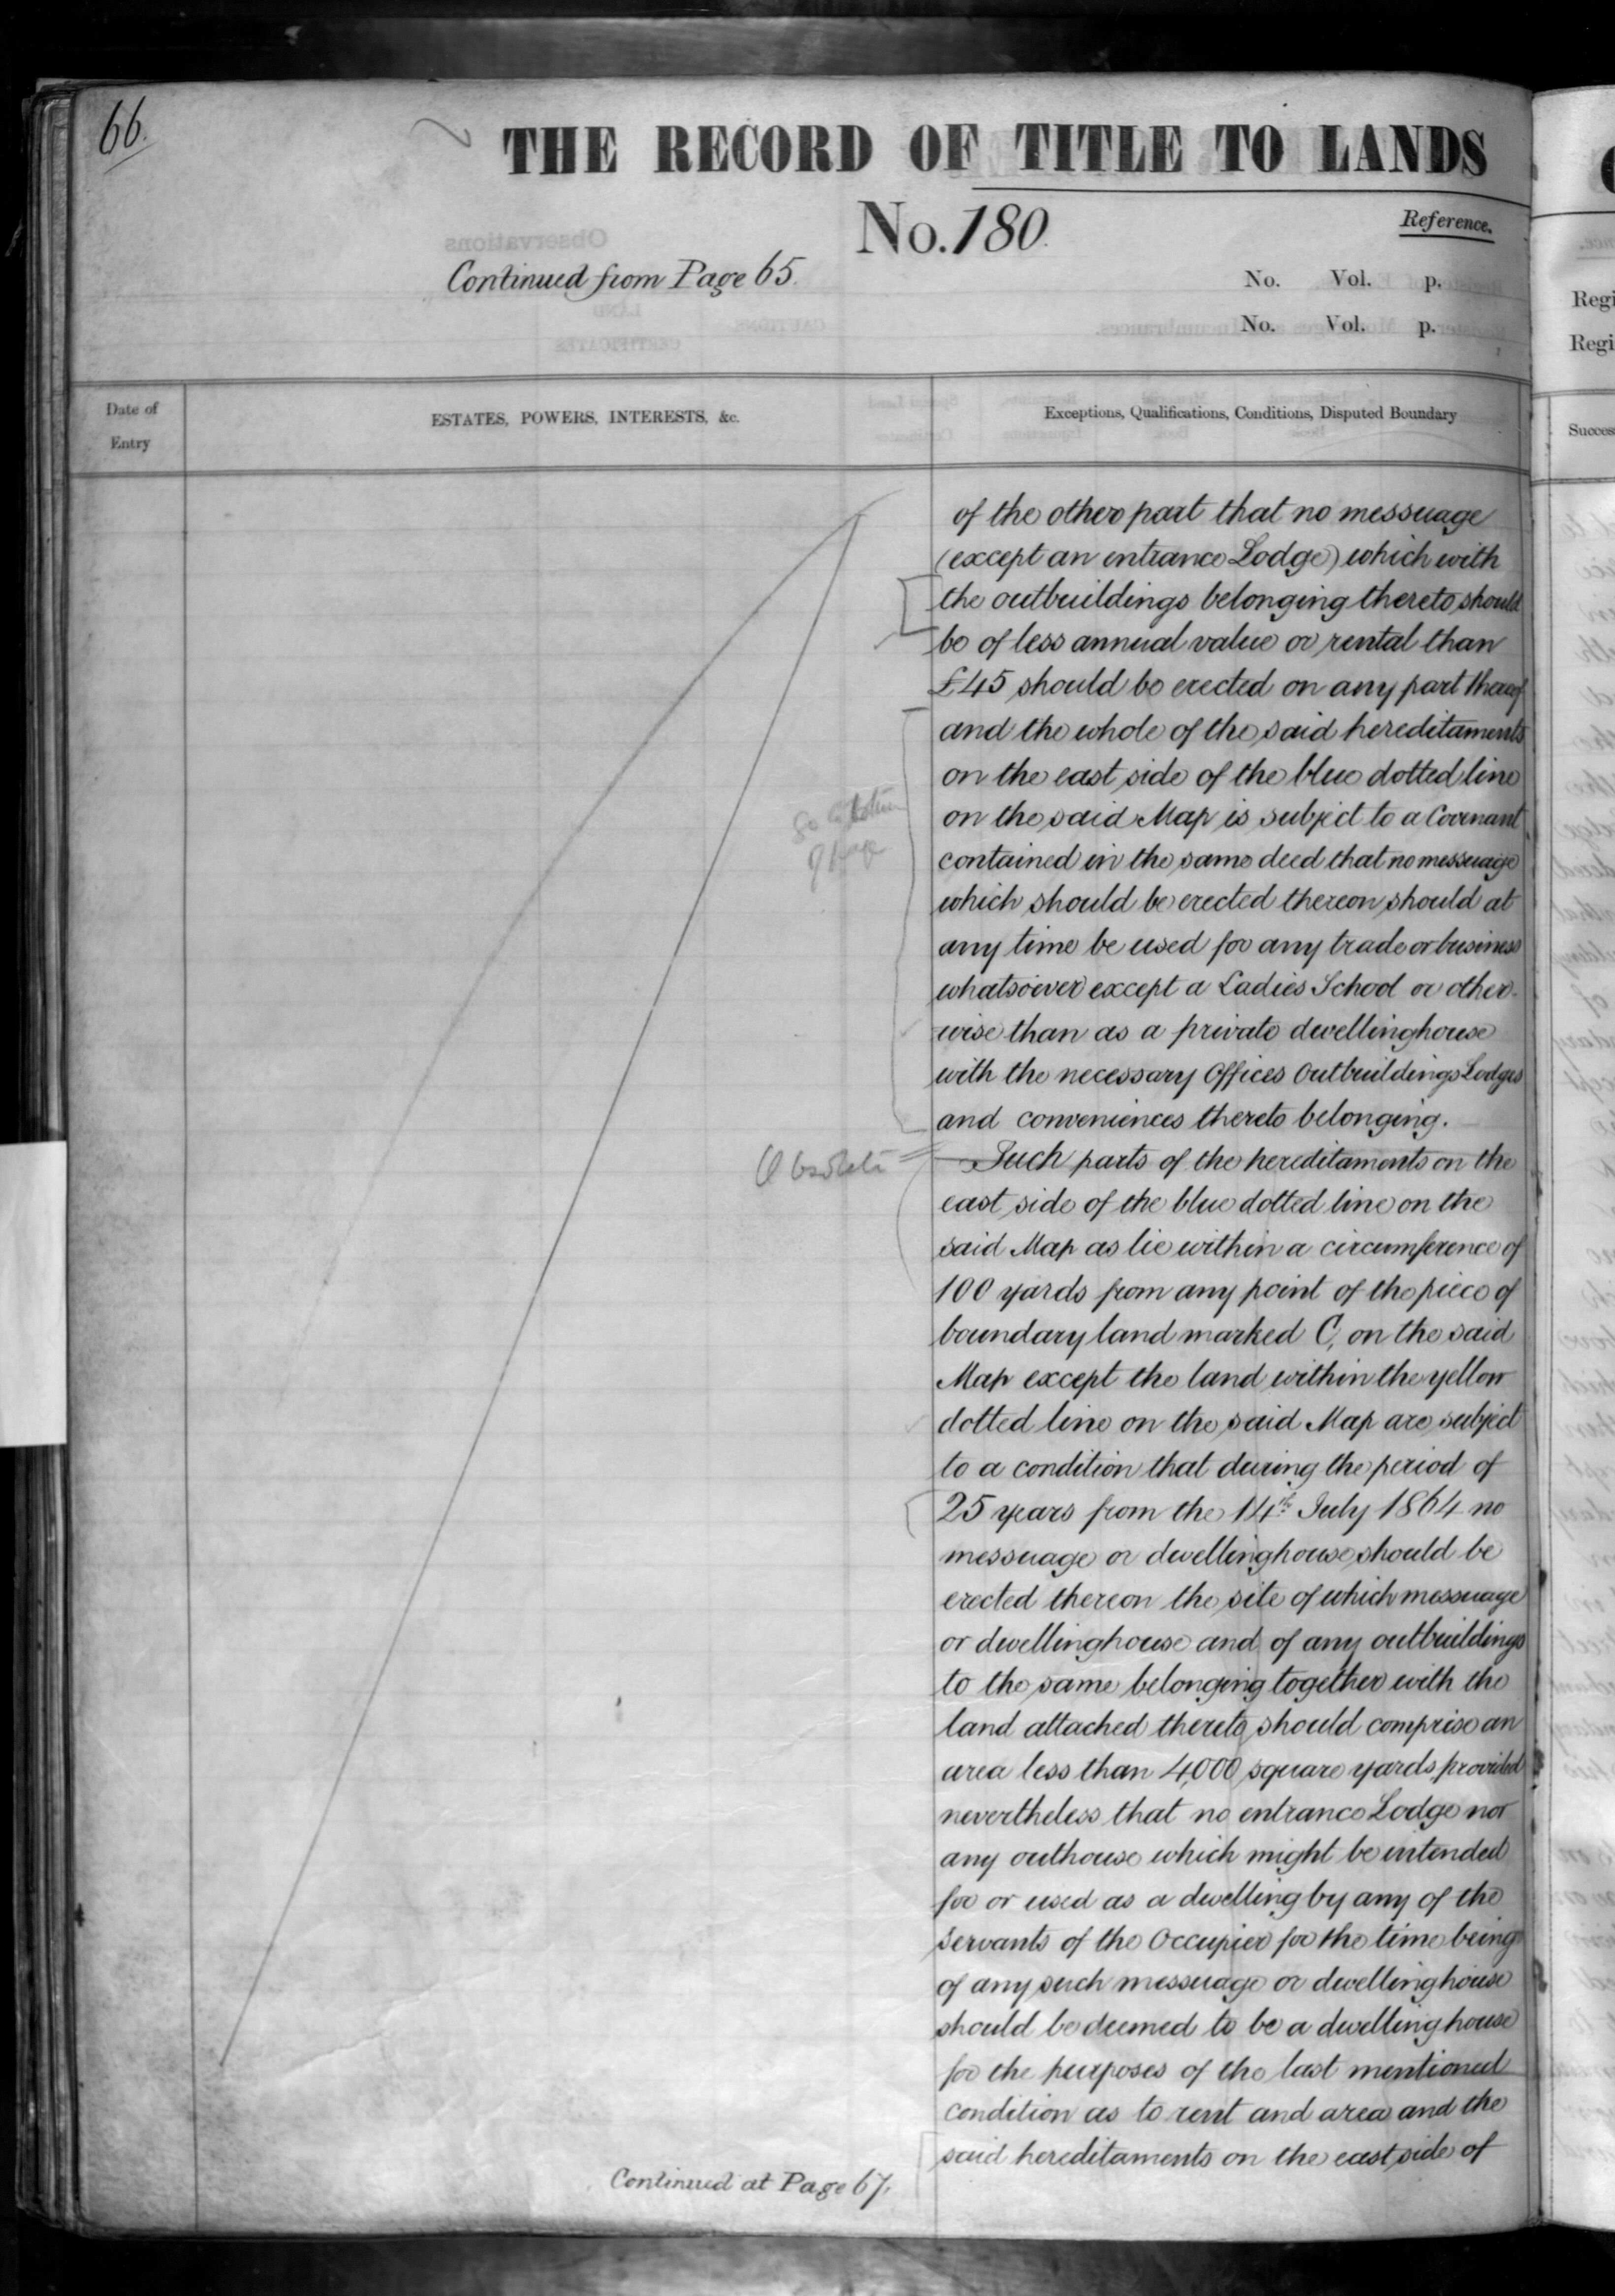 66.
THE RECORD OF TITLE TO LANDS
No. 180.
Reference.
Continued from Page 65.
No. Vol. p.
No. Vol. p.
Date of
Entry
ESTATES, POWERS, INTERESTS, &c.
Exceptions, Qualifications, Conditions, Disputed Boundary
of the other part that no messuage
(except an entrance Lodge) which with
the outbuildings belonging thereto should
be of less annual value or rental than
£45 should be erected on any part thereof
and the whole of the said hereditaments
on the east side of the blue dotted line
on the said Map is subject to a Covenant
contained in the same deed that no messuage
which should be erected thereon should at
any time be used for any trade or business
whatsoever except a Ladies School or other-
wise than as a private dwellinghouse
with the necessary Offices Outbuildings Lodges
and conveniences thereto belonging.
Obsolete
Such parts of the hereditaments on the
east side of the blue dotted line on the
said Map as lie within a circumference of
100 yards from any point of the piece of
boundary land marked C, on the said
Map except the land within the yellow
dotted line on the said Map are subject
to a condition that during the period of
25 years from the 14th July 1864 no
messuage or dwellinghouse should be
erected thereon the site of which messuage
or dwellinghouse and of any outbuildings
to the same belonging together with the
land attached thereto should comprise an
area less than 4,000 square yards provided
nevertheless that no entrance Lodge nor
any outhouse which might be intended
for or used as a dwelling by any of the
Servants of the Occupier for the time being
of any such messuage or dwellinghouse
should be deemed to be a dwelling house
for the purposes of the last mentioned
condition as to rent and area and the
said hereditaments on the east side of
Continued at Page 67.
Regi
Regi
Succes